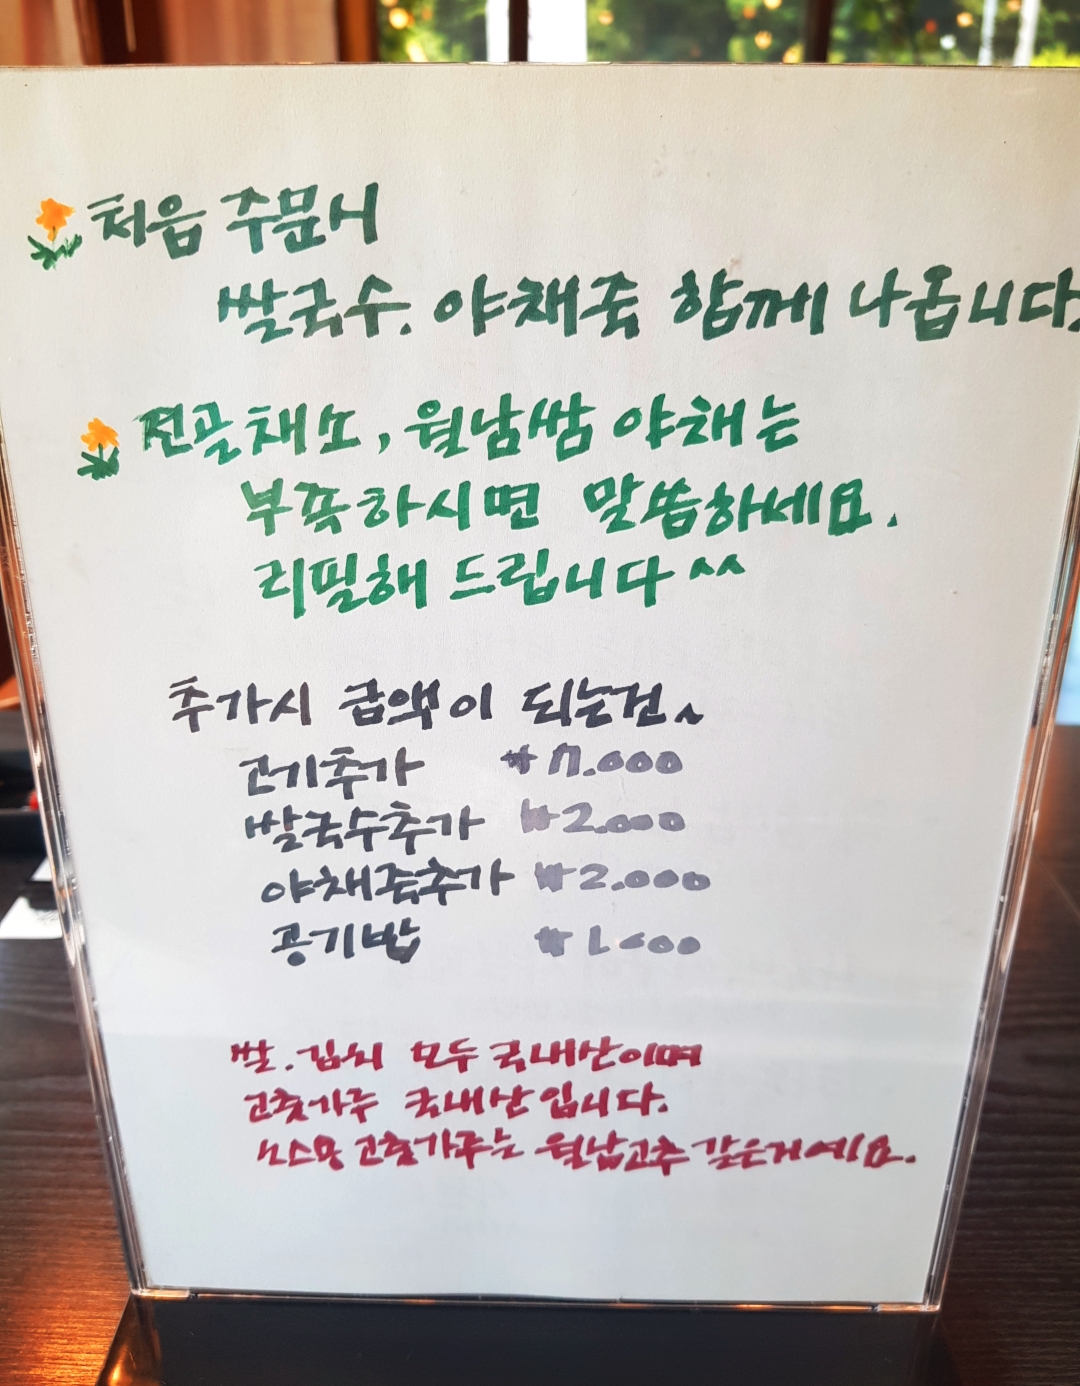 처음 주문시
쌀국수. 야채죽 함께 나옵니다.
전골채소, 월남쌈 야채는
부족하시면 말씀하세요.
리필해 드립니다^^
추가시 금액이 되는건~
고기추가 ₩7.000
쌀국수추가 ₩2.000
야채죽추가 ₩2.000
공기밥 ₩1.000
쌀. 김치 모두 국내산이며
고춧가루 국내산입니다.
고춧가루는 월남고추 같은거에요.